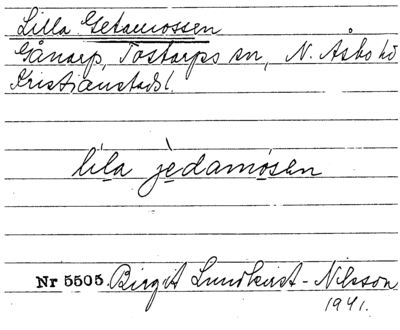 Lilla Getamossen
Gånarp, Tåstarps sn, N. Åsbo hd
Kristianstads l.
lila jèdamosen
Nr 5505. Birgit Lundkvist-Nilsson
1941.